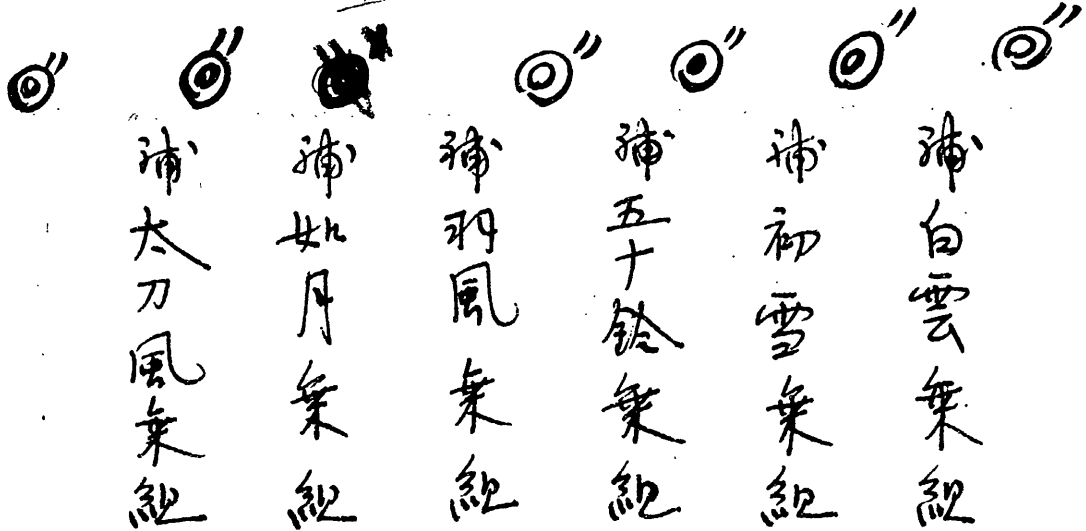 補白雲乗組
補初雪乗組
補五十鈴乗組
補羽風乗組
補如月乗組
補太刀風乗組